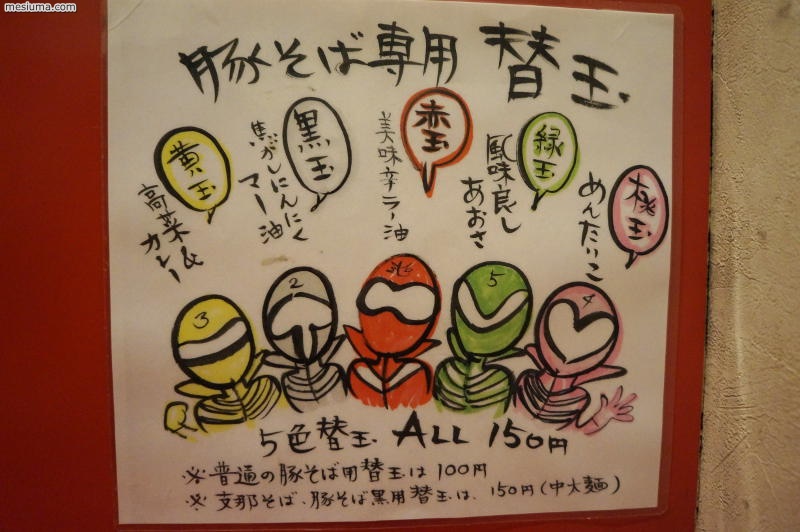 mesiuma.com
豚そば専用 替玉
黄玉
高菜&カレー
黒玉
焦がしにんにく
マー油
赤玉
美味辛ラー油
緑玉
風味良し
あおさ
桃玉
めんたいこ
3
2
5
4
5色替玉 ALL 150円
※普通の豚そば用替玉は100円
※支那そば、豚そば黒用替玉は、150円(中太麺)